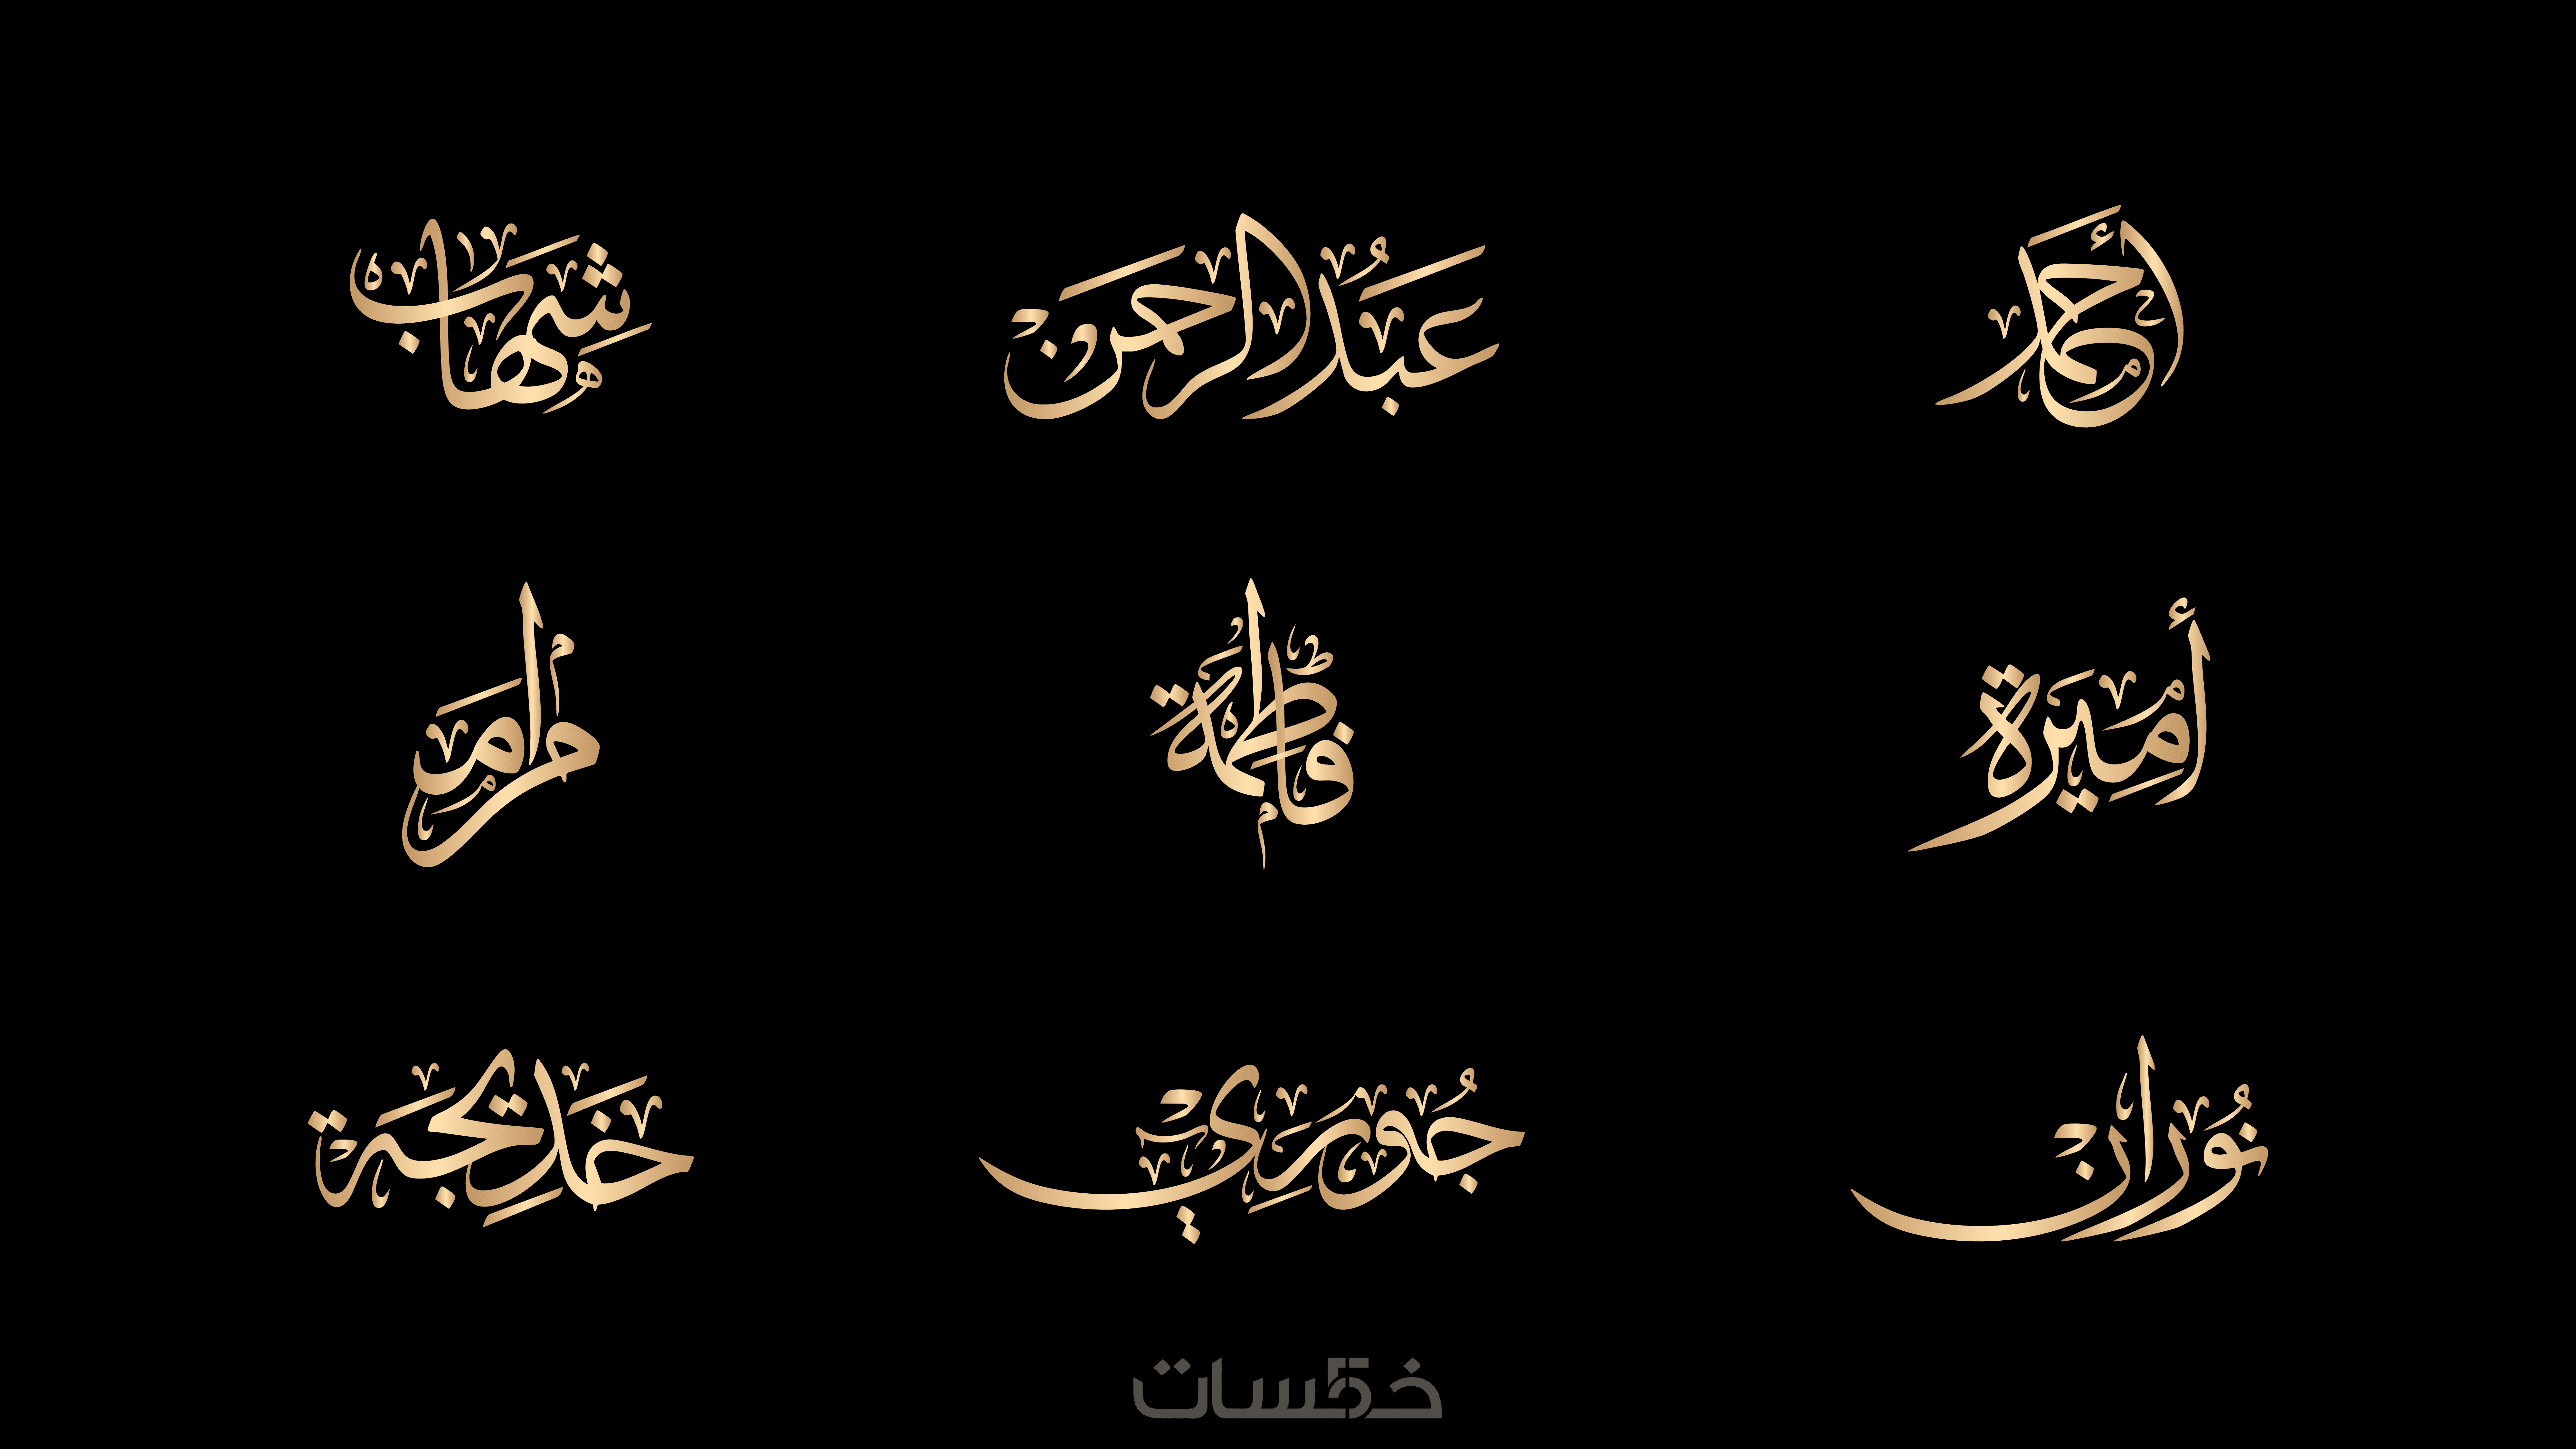 أحمد عبدُ الرحمن شِهاب
أمِيرة فاطمة مرام
نُوران جُورِي خَدِيجَة
خمسات